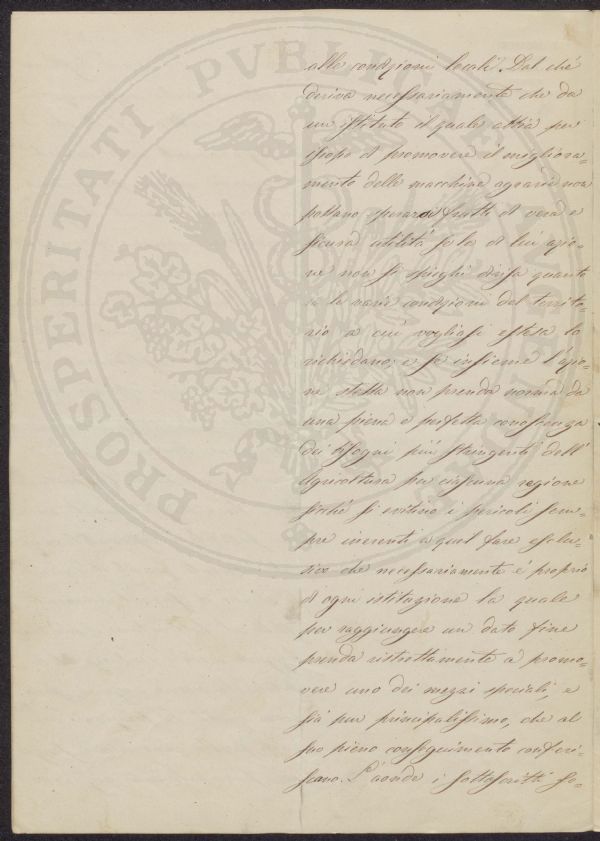 PROSPERITATI PVBLICAE
alle condizioni locali. Dal che
deriva necessariamente che da
un istituto il quale abbia per
iscopo di promovere il migliora=
mento delle macchine agrarie non
possano sperarsi frutti di vera e
sicura utilità se la di lui azio=
ne non si spieghi divisa quanto
le varie condizioni del territo=
rio a cui vogliasi estesa lo
richiedano; e se insieme l'azio=
ne stessa non prenda norma da
una piena e perfetta conoscenza
dei bisogni più stringenti dell'
agricoltura per ciascuna regione
sicché si evitino i pericoli sem=
pre inerenti a quel fare esclu=
sivo che necessariamente é proprio
di ogni istituzione la quale
per raggiungere un dato fine
prenda ristrettamente a promo=
vere uno dei mezzi speciali, e
sia pur principalissimo, che al
suo pieno conseguimento conferi=
scano. Laonde i sottoscritti so=